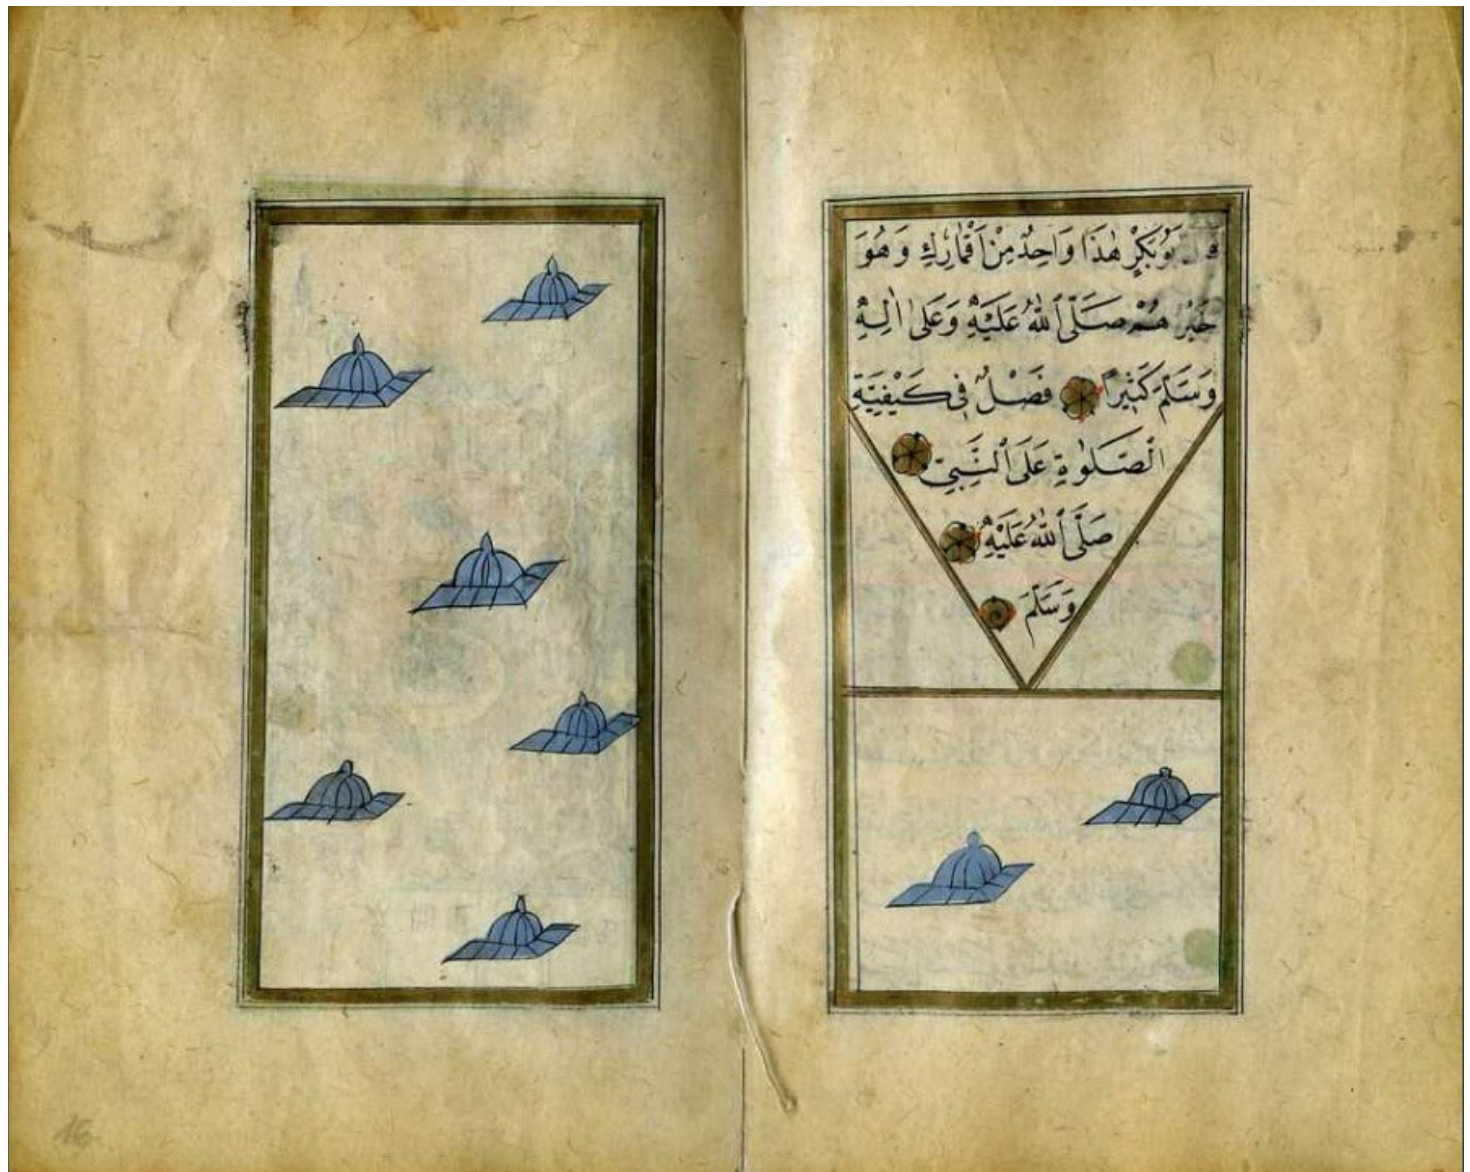 بُوبَكْرٍ هٰذَا وَاحِدٌ مِنْ اَقْمَارِكِ وَهُوَ
خَيْرُهُمْ صَلَّى ٱللّٰهُ عَلَيْهِ وَعَلٰى اٰلِهِ
وَسَلَّمَ كَثِيرًا فَصْلٌ فِى كَيْفِيَّةِ
الصَّلٰوةِ عَلَى ٱلنَّبِىِّ
صَلَّى ٱللّٰهُ عَلَيْهِ
وَسَلَّمَ
16